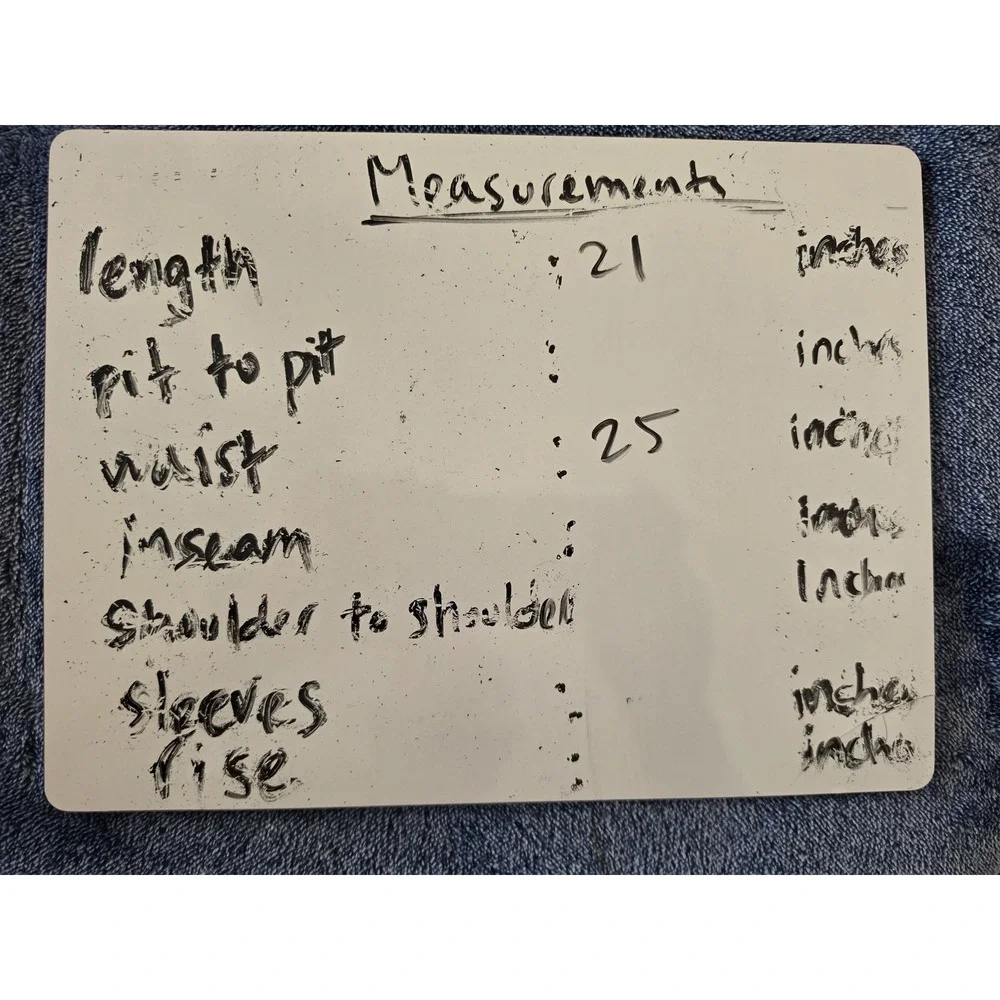 Measurements
length : 21 inches
pit to pit : inches
waist : 25 inches
inseam : inches
shoulder to shoulder inches
sleeves : inches
rise : inches